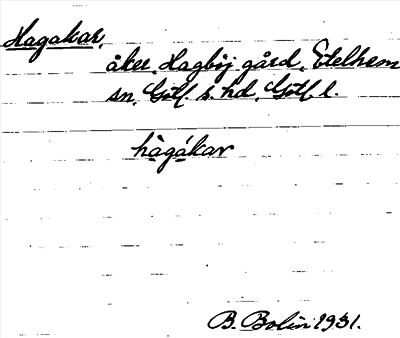 Hagakar,
åker, Hagböj gård, Etelhem
sn, Gotl. s. hd, Gotl. l.
hàgákar
B. Bolin 1931.